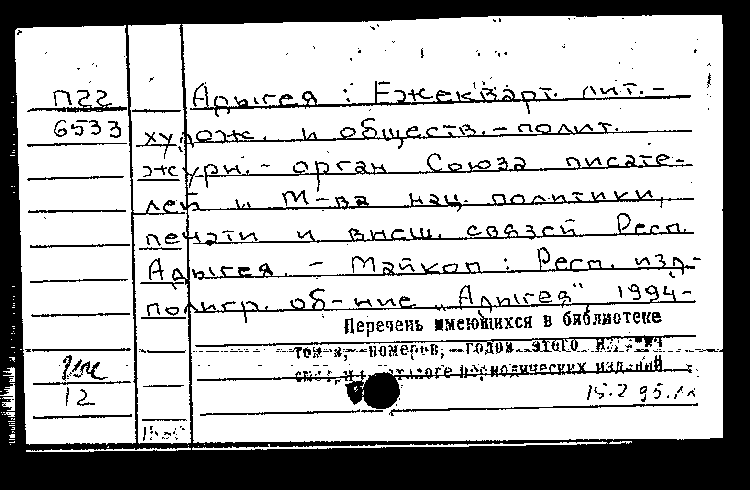 П22 Адыгея : Ежекварт. лит.-
6533 худож. и обществ.-полит.
журн.- орган Союза писате-
лей и М-ва нац. политики,
печати и внеш. связей Респ.
Адыгея. - Майкоп : Респ. изд-
полигр. об-ние „Адыгея" 1994-
Перечень имеющихся в библиотеке
номеров, годов этого
периодических изданий
12
15.2 95